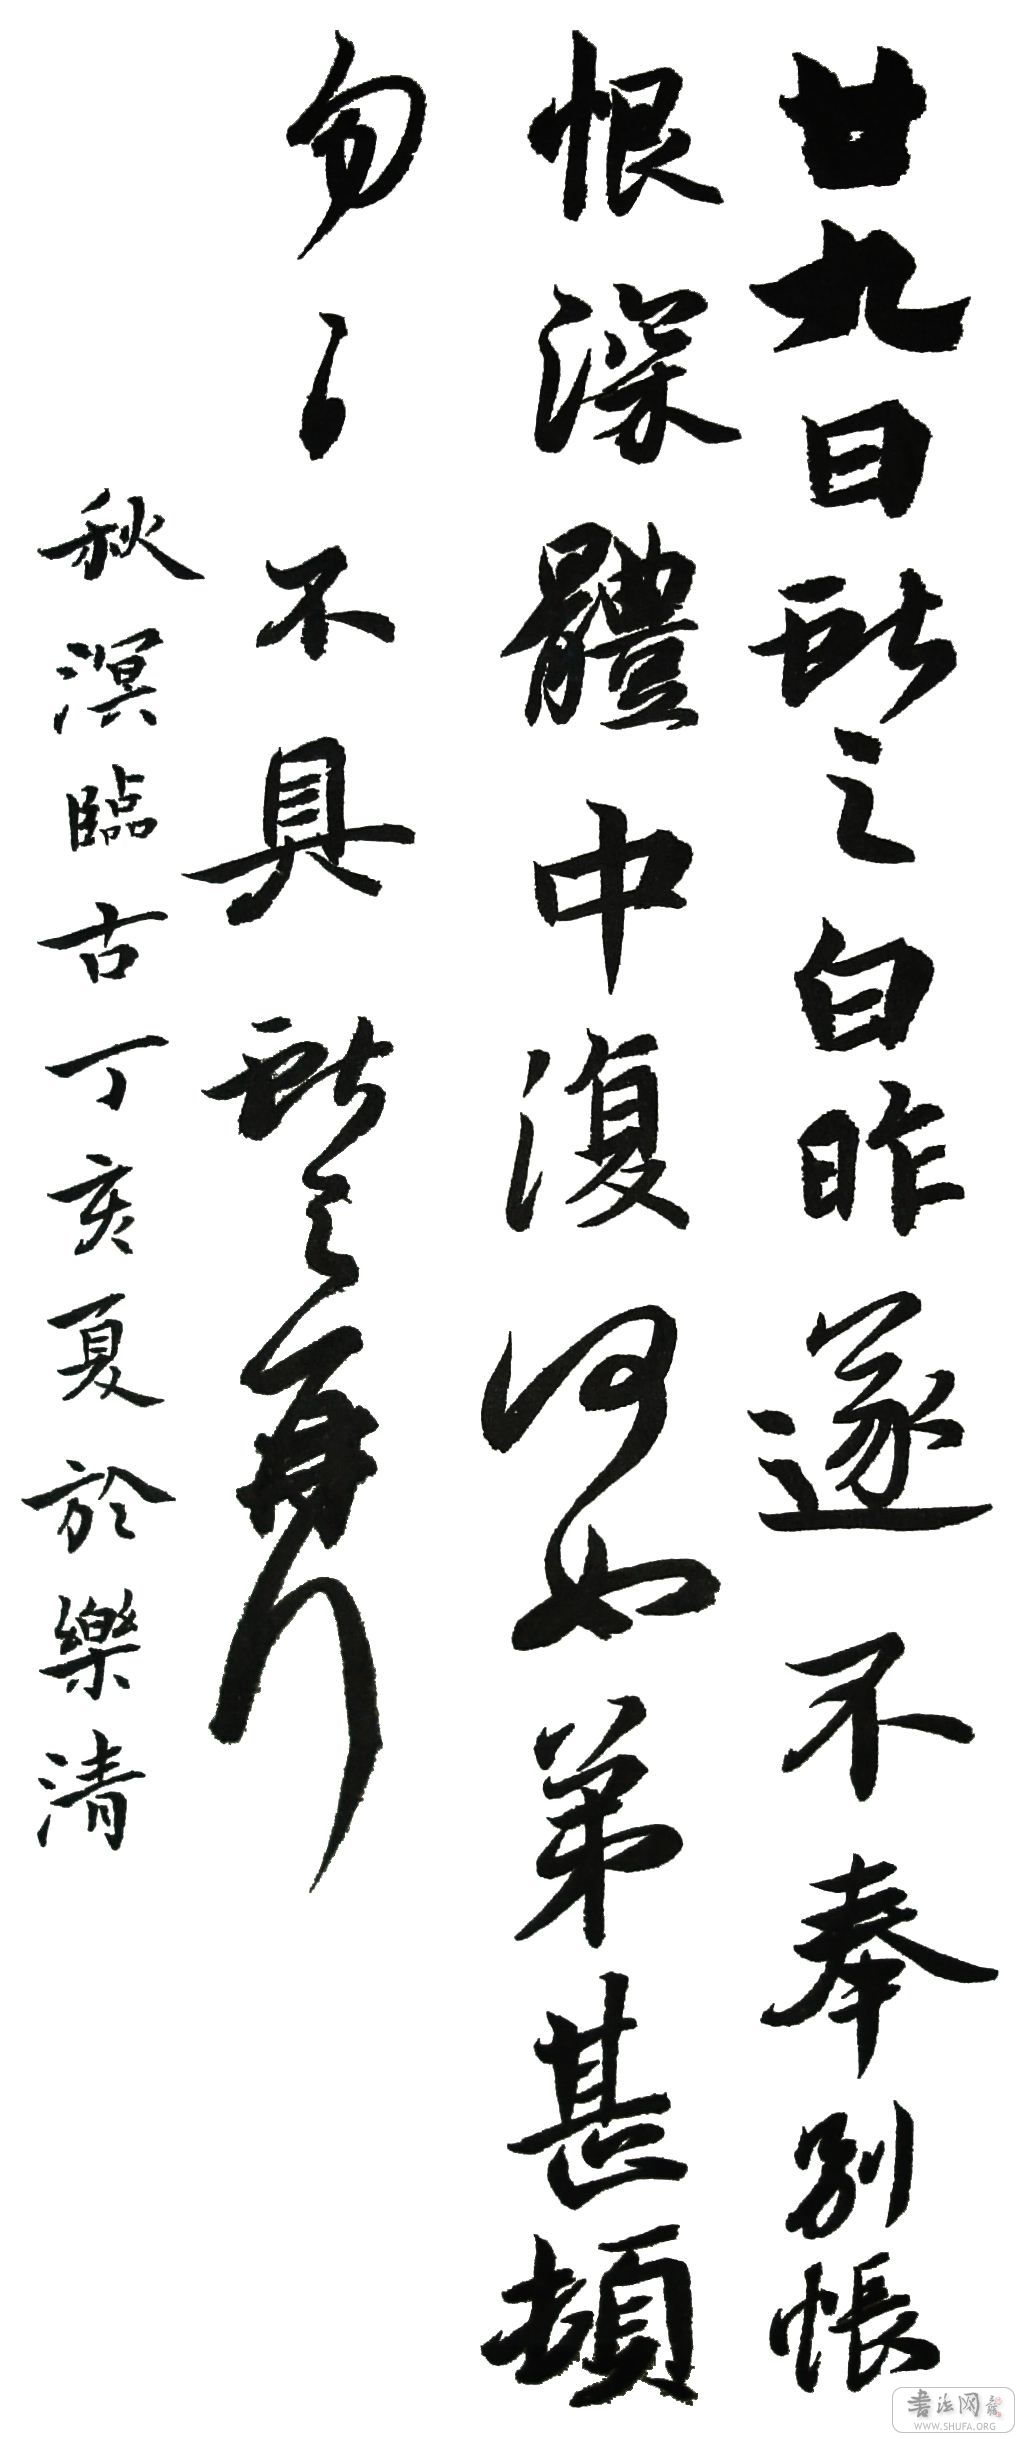 廿九日獻之白昨遂不奉別悵
恨深體中復何如弟甚頓
匆匆不具獻之再拜
秋溟臨古丁亥夏於樂清
書法网
WWW.SHUFA.ORG